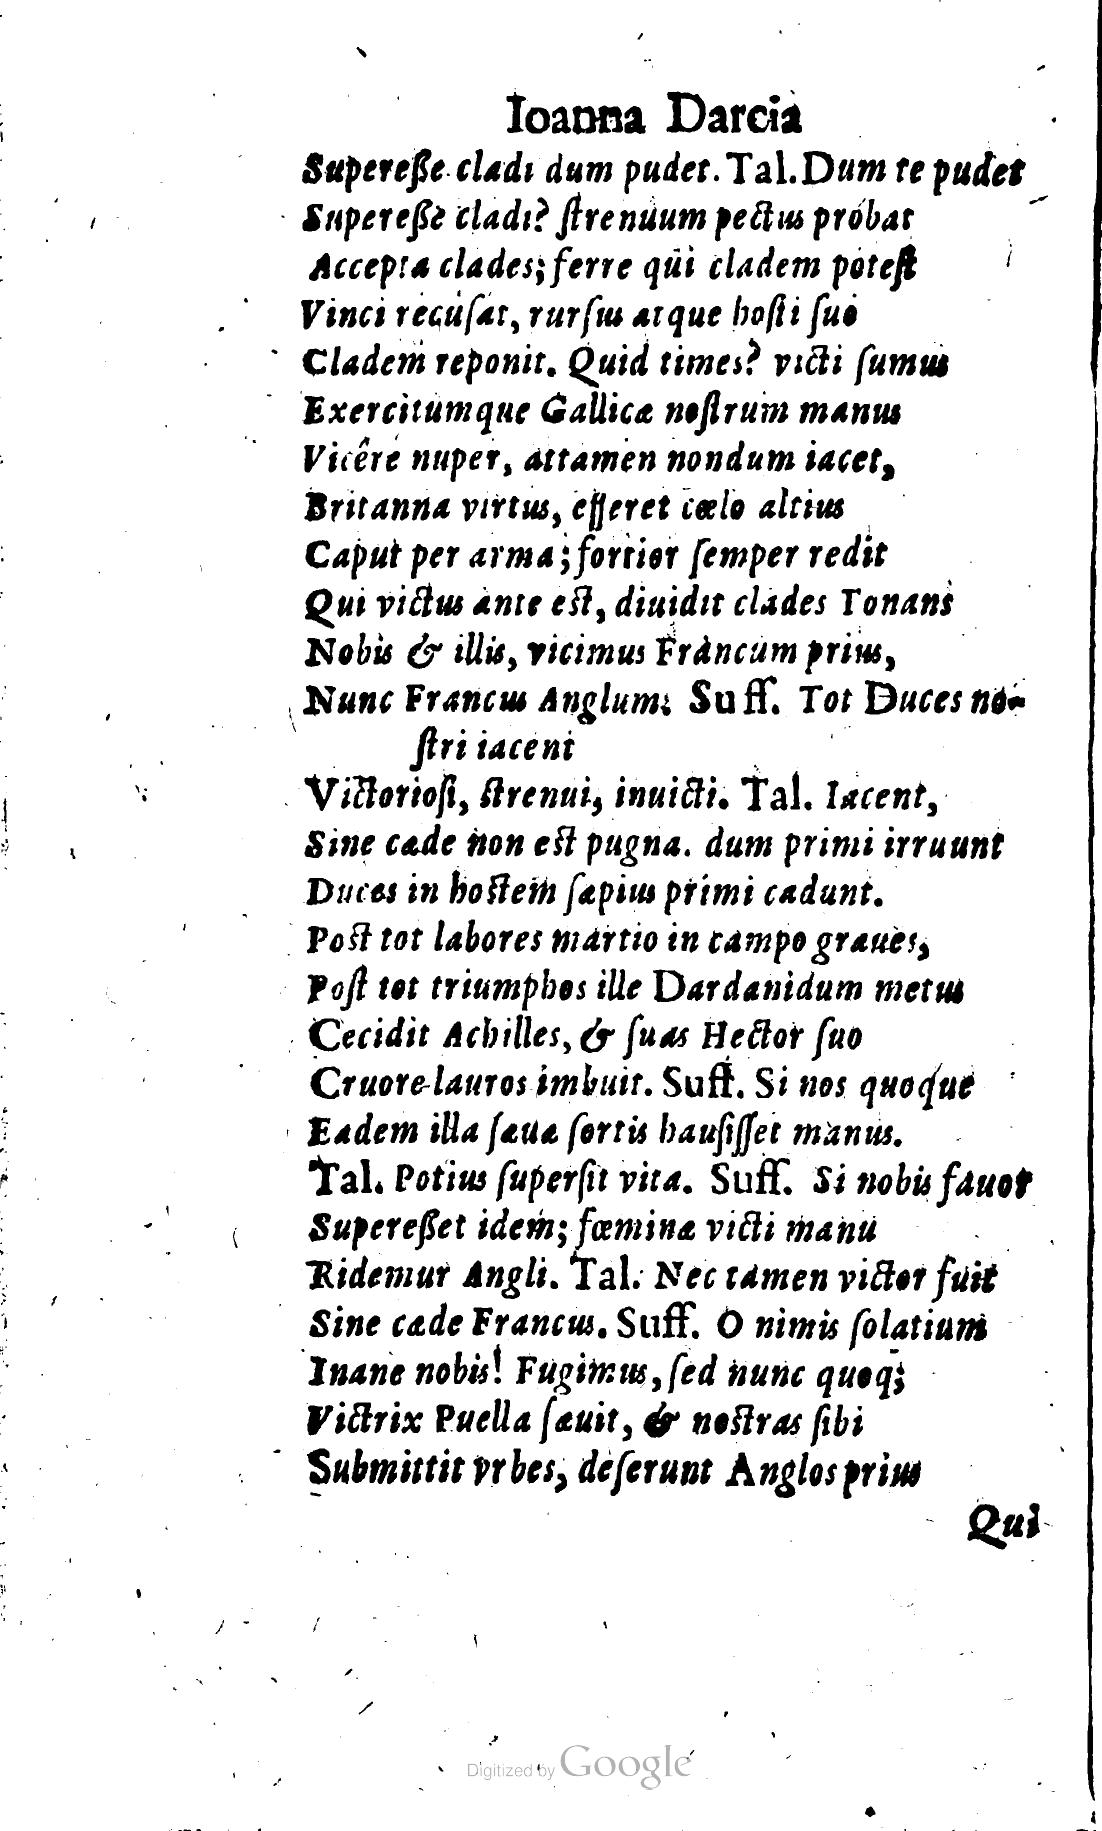 Ioanna Darcia
Supereße cladi dum pudet. Tal. Dum te pudet
Supereße cladi? ſtrenuum pectus probat
Accepta clades; ferre qui cladem poteſt
Vinci recuſat, rurſus atque hoſti ſuo
Cladem reponit. Quid times? victi ſumus
Exercitumque Gallicæ noſtrum manus
Vicêre nuper, attamen nondum iacet,
Britanna virtus, efferet cœlo altius
Caput per arma; fortior ſemper redit
Qui victus ante eſt, diuidit clades Tonans
Nobis & illis, vicimus Francum prius,
Nunc Francus Anglum: Suff. Tot Duces no-
ſtri iacent
Victorioſi, ſtrenui, inuicti. Tal. Iacent,
Sine cæde non eſt pugna. dum primi irruunt
Duces in hoſtem ſæpius primi cadunt.
Poſt tot labores martio in campo graues,
Poſt tot triumphos ille Dardanidum metus
Cecidit Achilles, & ſuas Hector ſuo
Cruore lauros imbuit. Suff. Si nos quoque
Eadem illa ſæua ſortis hauſiſſet manus.
Tal. Potius ſuperſit vita. Suff. Si nobis fauor
Supereßet idem; fœminæ victi manu
Ridemur Angli. Tal. Nec tamen victor fuit
Sine cæde Francus. Suff. O nimis ſolatium
Inane nobis! Fugimus, ſed nunc quoq;
Victrix Puella ſæuit, & noſtras ſibi
Submittit vrbes, deſerunt Anglos prius
Qui
Digitized by Google